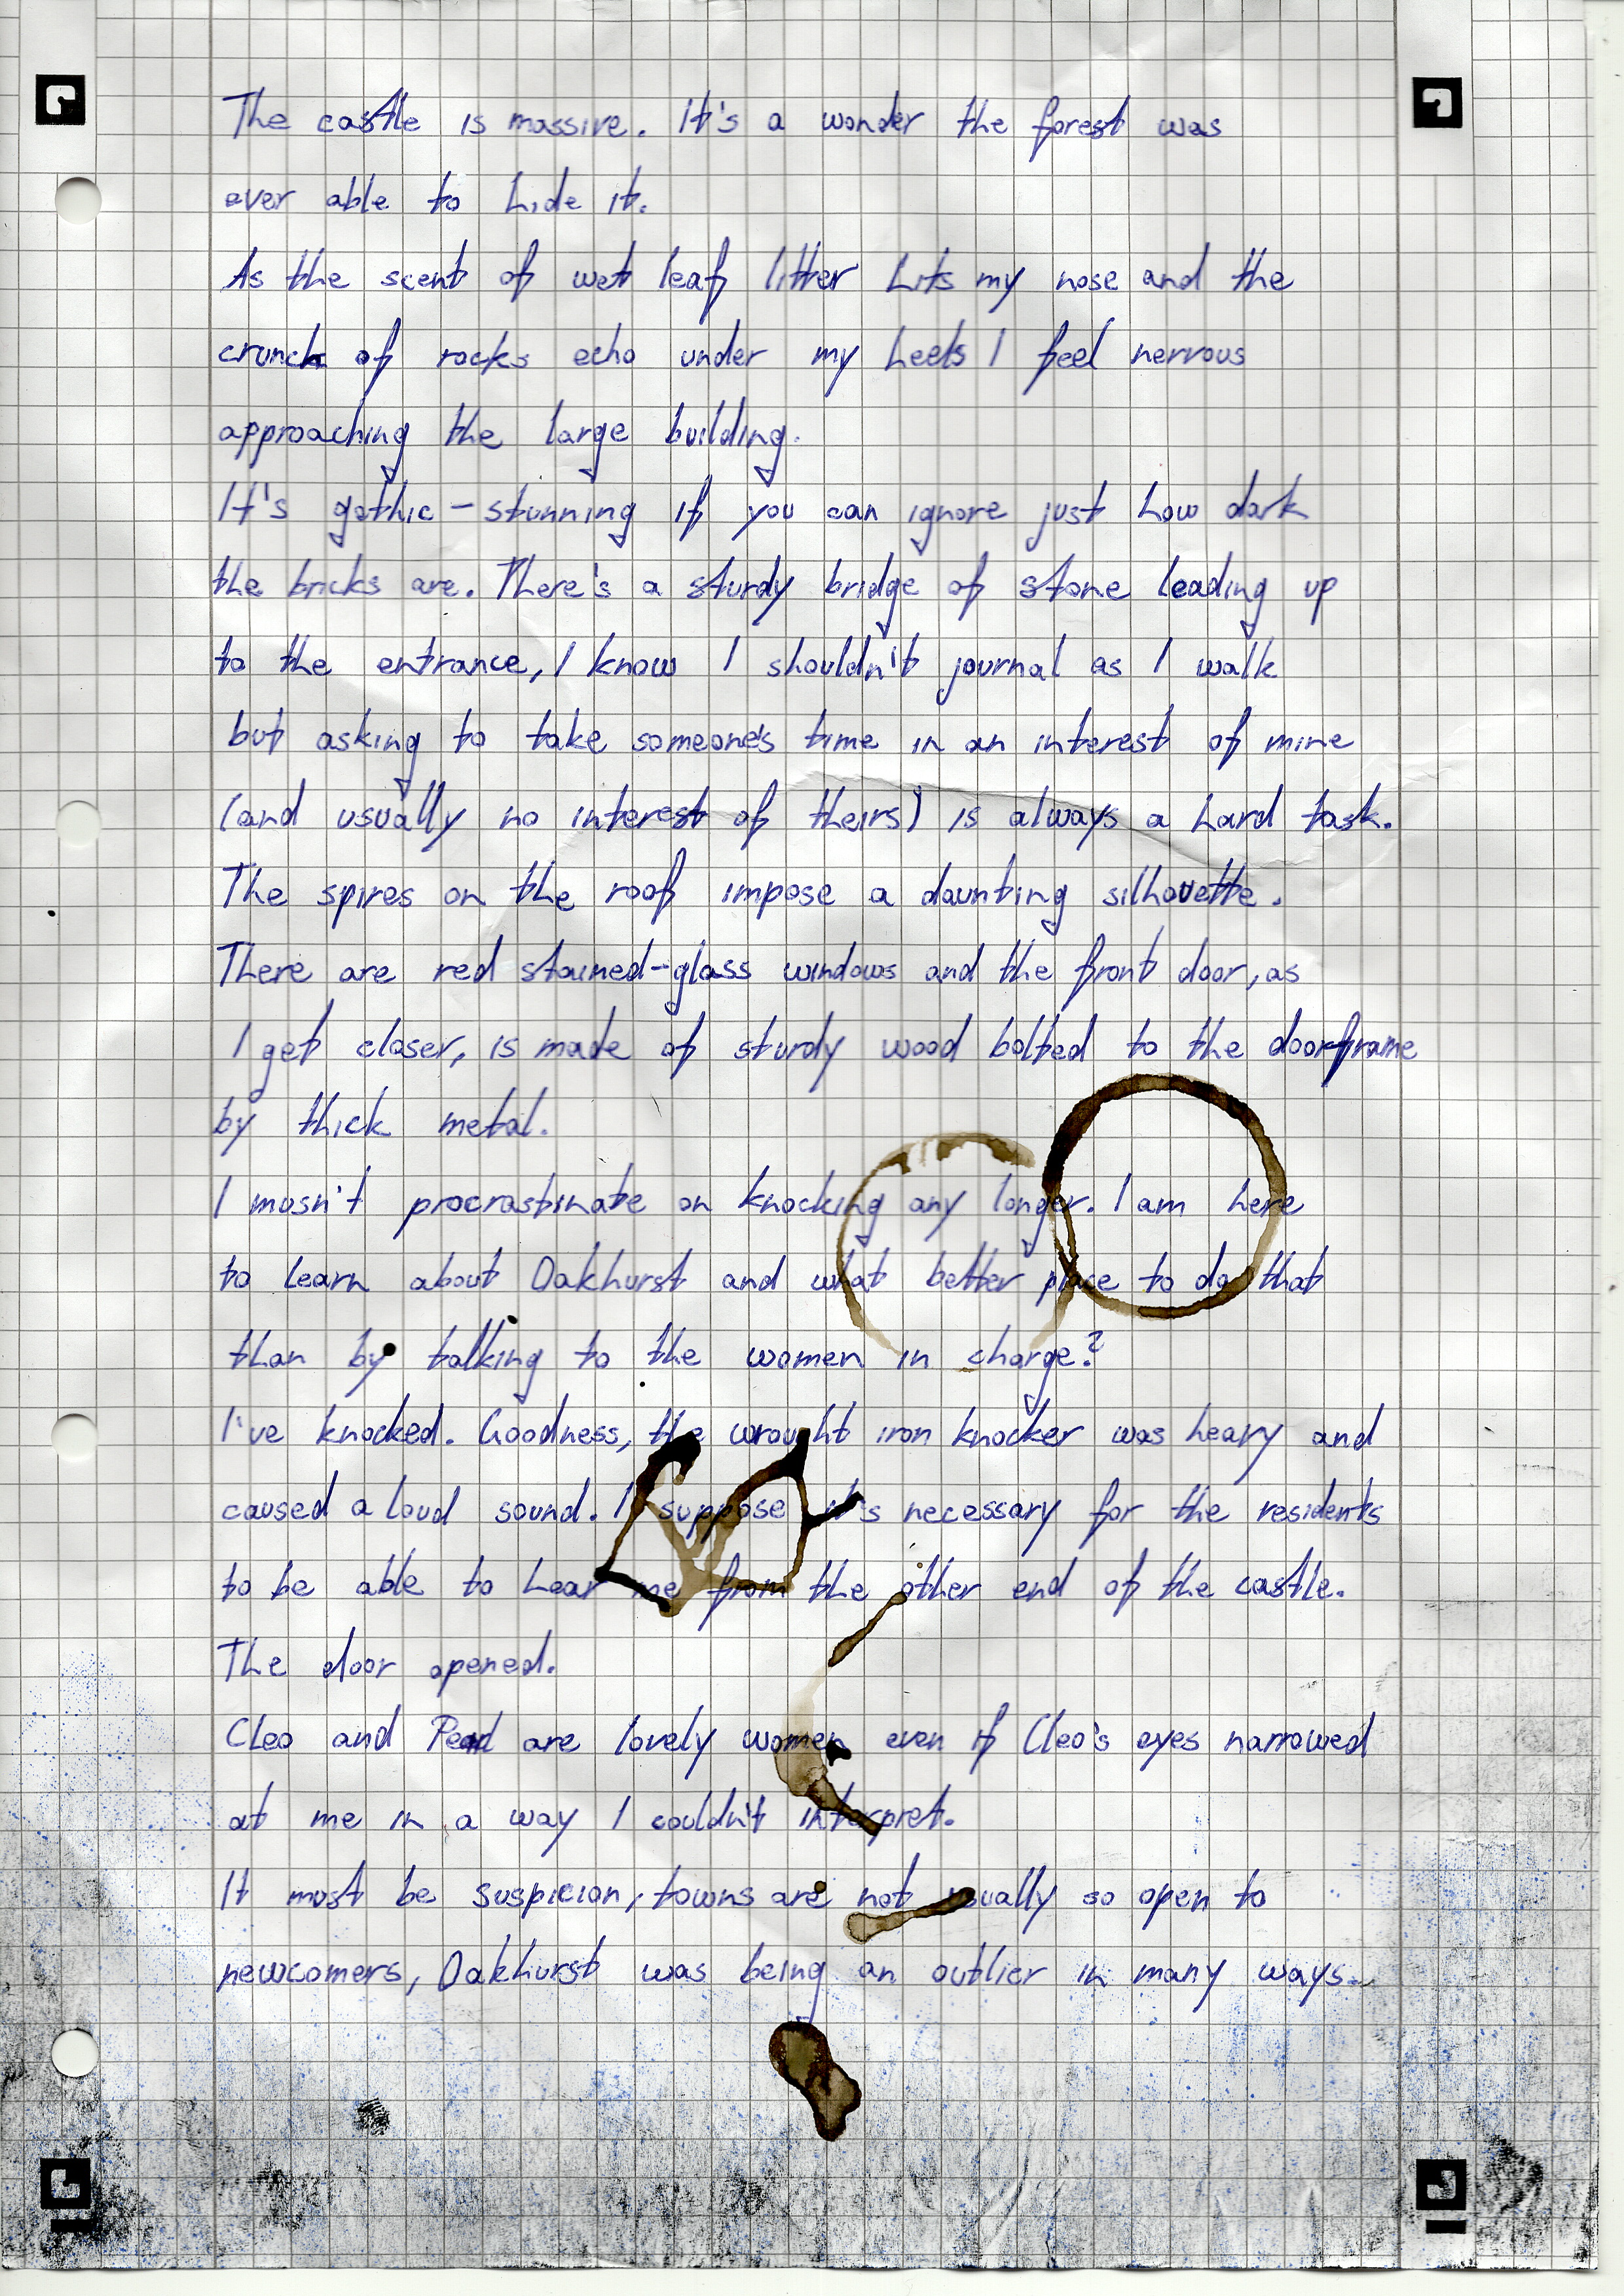 The castle is massive. It's a wonder the forest was
ever able to hide it.
As the scent of wet leaf litter hits my nose and the
crunch of rocks echo under my heels I feel nervous
approaching the large building.
It's gothic - stunning if you can ignore just how dark
the bricks are. There's a sturdy bridge of stone leading up
to the entrance, I know I shouldn't journal as I walk
but asking to take someone's time in an interest of mine
(and usually no interest of theirs) is always a hard task.
The spires on the roof impose a daunting silhouette.
There are red stained-glass windows and the front door, as
I get closer, is made of sturdy wood bolted to the doorframe
by thick metal.
I musn't procrastinate on knocking any longer. I am here
to learn about Oakhurst and what better place to do that
than by talking to the women in charge?
I've knocked. Goodness, the wrought iron knocker was heavy and
caused a loud sound. I suppose it's necessary for the residents
to be able to hear me from the other end of the castle.
The door opened.
Cleo and Pearl are lovely women even if Cleo's eyes narrowed
at me in a way I couldn't interpret.
It must be suspicion, towns are not usually so open to
newcomers, Oakhurst was being an outlier in many ways.